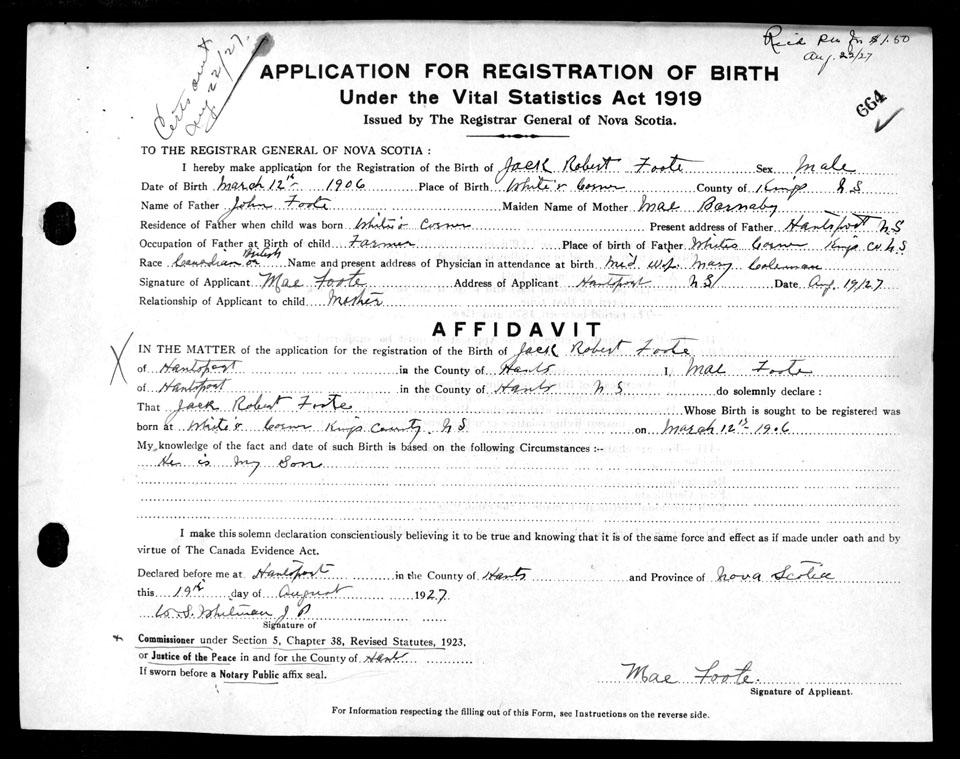 Certs out
Aug 22/27.
Rec'd $1.50
Aug. 22/27
664
APPLICATION FOR REGISTRATION OF BIRTH
Under the Vital Statistics Act 1919
Issued by The Registrar General of Nova Scotia.
TO THE REGISTRAR GENERAL OF NOVA SCOTIA :
I hereby make application for the Registration of the Birth of Jack Robert Foote Sex Male
Date of Birth March 12th 1906 Place of Birth White's Corner County of Kings N S
Name of Father John Foote Maiden Name of Mother Mae Barnaby
Residence of Father when child was born White's Corner Present address of Father Hantsport N S
Occupation of Father at Birth of child Farmer Place of birth of Father Whites Corner Kings Co. N S
Race Canadian or British Name and present address of Physician in attendance at birth Mary Coleman
Signature of Applicant Mae Foote Address of Applicant Hantsport N S Date Aug. 19/27
Relationship of Applicant to child Mother
AFFIDAVIT
X IN THE MATTER of the application for the registration of the Birth of Jack Robert Foote
of Hantsport in the County of Hants I, Mae Foote
of Hantsport in the County of Hants N S do solemnly declare :
That Jack Robert Foote Whose Birth is sought to be registered was
born at White's Corner Kings County N S on March 12th 1906
My knowledge of the fact and date of such Birth is based on the following Circumstances :--
He is My Son
I make this solemn declaration conscientiously believing it to be true and knowing that it is of the same force and effect as if made under oath and by
virtue of The Canada Evidence Act.
Declared before me at Hantsport in the County of Hants and Province of Nova Scotia
this 19th day of August 1927
W. S. Whitman J P
Signature of
* Commissioner under Section 5, Chapter 38, Revised Statutes, 1923,
or Justice of the Peace in and for the County of Hants
If sworn before a Notary Public affix seal.
Mae Foote.
Signature of Applicant.
For Information respecting the filling out of this Form, see Instructions on the reverse side.